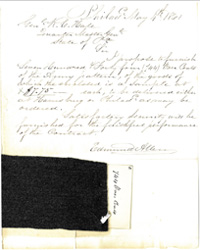 Philad May 9th 1861
Gen. R. C. Hale
Quarter Master Genl
State of Pa
Sir
I propose to furnish
Seven Hundred & Forty four (744) Over Coats
of the Army pattern of the goods of
which the enclosed is a sample at
$7.75 each, to be delivered either
at Harrisburg or Philad as may be
ordered.
Satisfactory Security will be
furnished for the faithful performance
of the Contract.
Edmund Allen
744 Over Coats